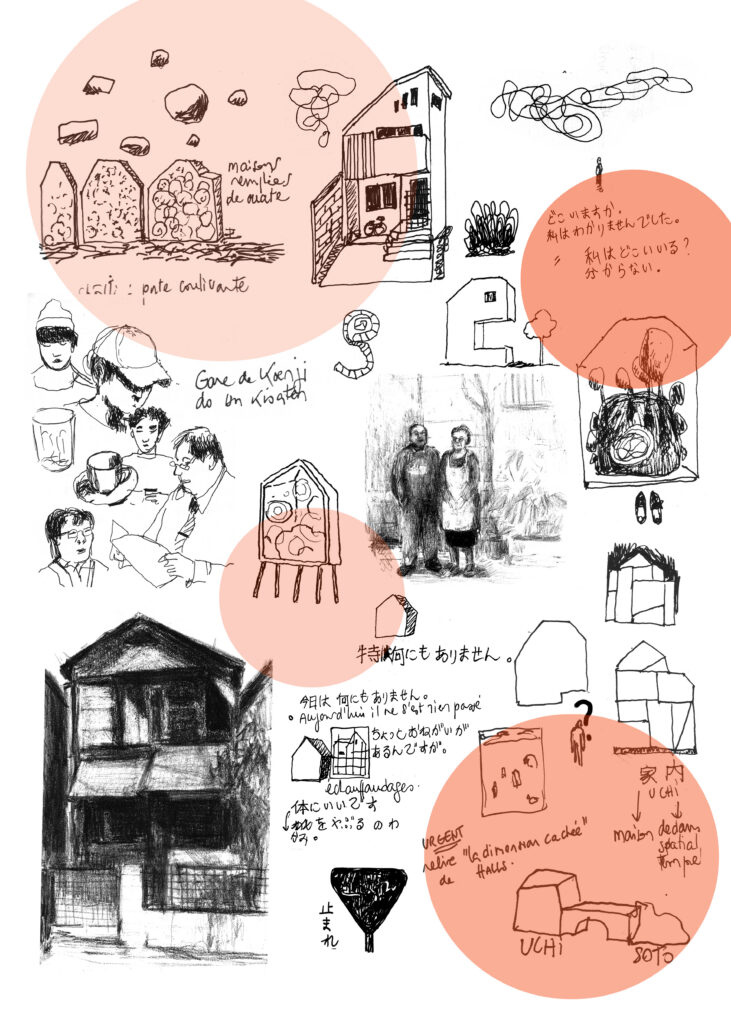 maisons
remplies
de ouate
: pate coulivante
どこいますか.
私はわかりませんでした。
〃 私はどこいいる?
分からない。
Gare de Koenji
特は何にもありません。
今日は 何にもありません。
Aujourd'hui il ne s'est rien passé
ちょっとおねがいが
あるんですが。
echauffaudages.
体にいいです
をやぶるのわ
止まれ
?
家 内
UCHi
maison dedans
spatial
temporel
URGENT
relire "la dimension cachée"
de HALLS.
UCHi
SOTO